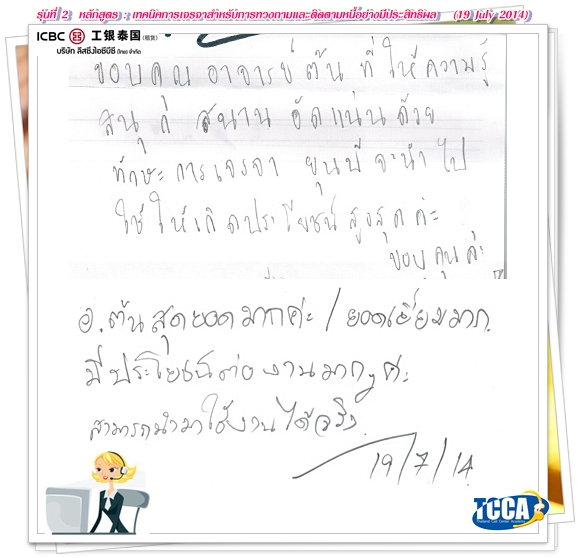 รุ่นที่ 2 หลักสูตร : เทคนิคการเจรจาสำหรับการทวงถามและติดตามหนี้อย่างมีประสิทธิผล (19 July 2014)
ICBC 工银泰国 (租赁)
บริษัท ลีสซิ่งไอซีบีซี (ไทย) จำกัด
ขอบคุณ อาจารย์ต้น ที่ให้ความรู้
สนุก สนาน อัดแน่นด้วย
ทักษะ การเจรจา จะนำไป
ใช้ให้เกิดประโยชน์สูงสุดค่ะ
ขอบคุณค่ะ
อ.ต้นสุดยอดมากค่ะ / ยอดเยี่ยมมาก
มีประโยชน์ต่องานมากๆค่ะ
สามารถนำมาใช้งานได้จริง
19/7/14
TCCA
Thailand Call Center Academy